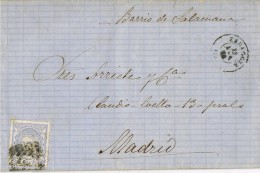 Barrio de Salamanca
Sres Arriete y Cia
Claudio Coello - 13 - pral
Madrid